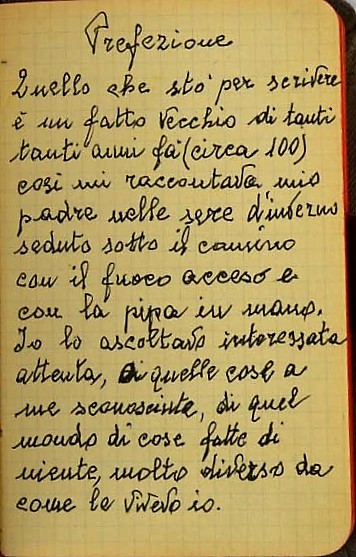 Prefezione
Quello che sto' per scrivere
è un fatto vecchio di tanti
tanti anni fà (circa 100)
così mi raccontava mio
padre nelle sere d'inverno
seduto sotto il camino
con il fuoco acceso e
con la pipa in mano.
Io lo ascoltavo interessata
attenta, di quelle cose a
me sconosciute, di quel
mondo di cose fatte di
niente, molto diverso da
come le vivevo io.